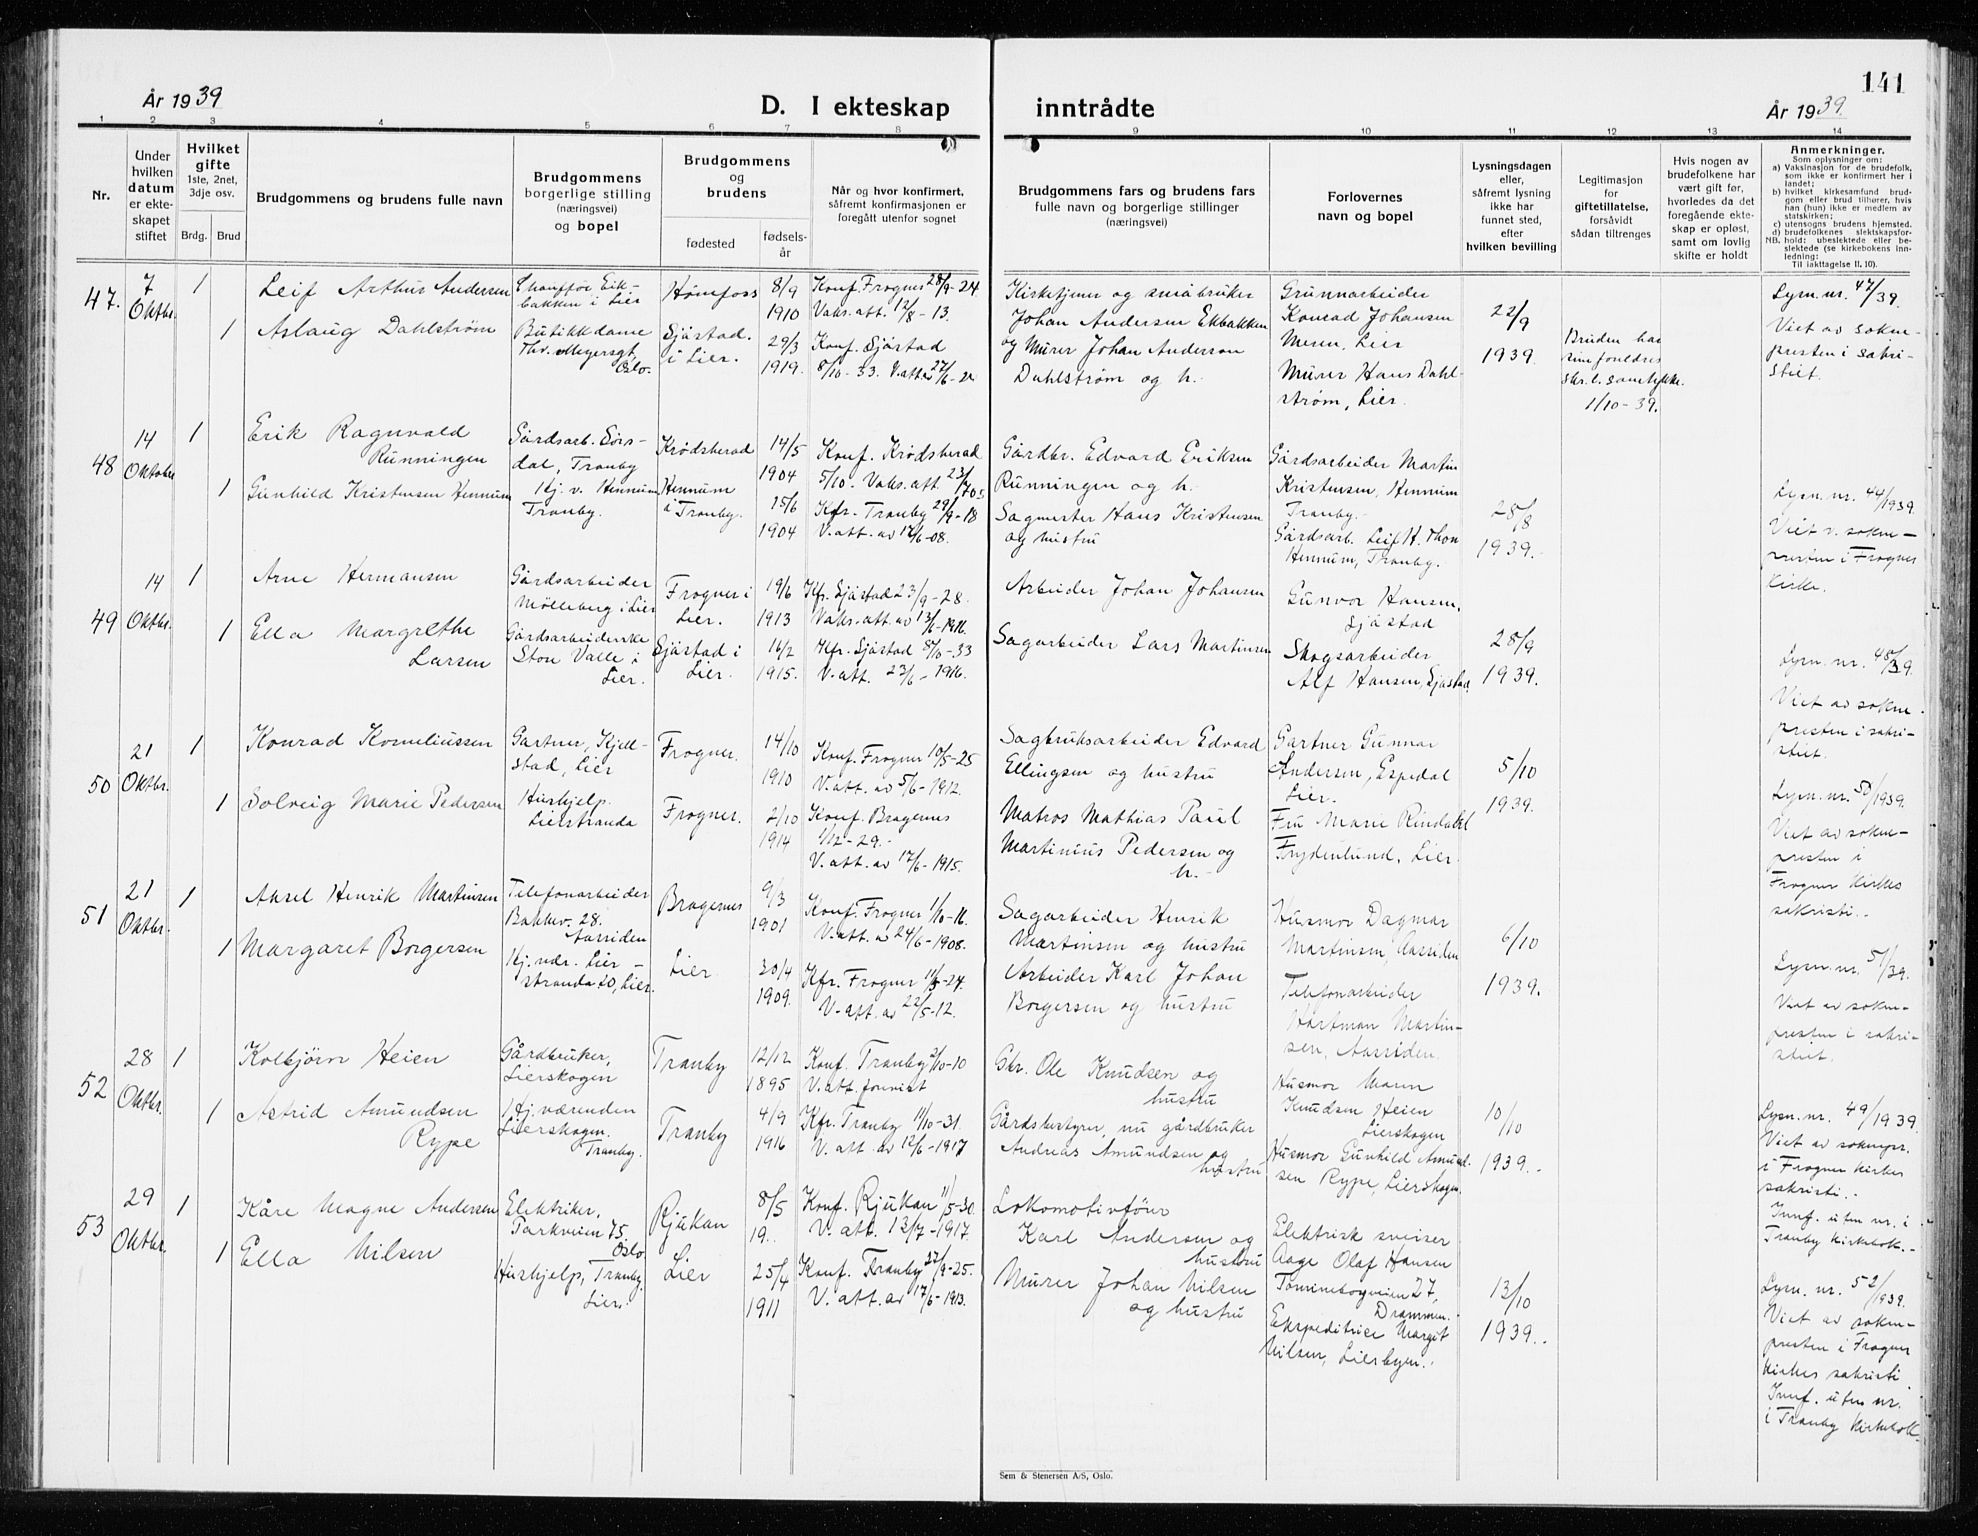 141
År 1939
D. I ekteskap inntrådte
År 1939
1 2 3 4 5 6 7 8 9 10 11 12 13 14
Nr.
Under hvilken datum er ekteskapet stiftet
Hvilket gifte
1ste, 2net, 3dje osv.
Brdg. Brud
Brudgommens og brudens fulle navn
Brudgommens borgerlige stilling (næringsvei) og bopel
Brudgommens og brudens
fødested
fødselsår
Når og hvor konfirmert, såfremt konfirmasjonen er foregått utenfor sognet
Brudgommens fars og brudens fars fulle navn og borgerlige stillinger (næringsvei)
Forlovernes navn og bopel
Lysningsdagen eller, såfremt lysning ikke har funnet sted, efter hvilken bevilling
Legitimasjon for giftetillatelse, forsåvidt sådan tiltrenges
Hvis nogen av brudefolkene har vært gift før, hvorledes da det foregående ekteskap er opløst, samt om lovlig skifte er holdt
Anmerkninger.
Som oplysninger om:
a) Vaksinasjon for de brudefolk, som ikke er konfirmert her i landet;
b) hvilket kirkesamfund brudgom eller brud tilhører, hvis han (hun) ikke er medlem av statskirken;
c) utensogns brudens hjemsted.
d) brudefolkenes slektskapsforhold: ubeslektede eller beslektede (se kirkebokens innledning:
NB.
Til iakttagelse II, 10).
47.
7 Oktbr.
1
Leif Arthur Andersen
Chauffør Eikbakken i Lier
Hønefoss
8/9 1910
Konf. Frogner 28/9-24.
Vaks. att. 12/8-13.
Kirketjener og småbruker
Johan Andersen Ekbakken
Grunnarbeider
Konrad Johansen
Meren, Lier
22/9 1939.
Lysn. nr. 47/39.
Viet av sogne-
presten i sakri-
stiet.
1
Aslaug Dahlstrøm
Butikkdame
Thv. Meyersgt, Oslo.
Sjåstad i Lier.
29/3 1919.
Konf. Sjåstad
8/10-33.
og Murer Johan Anderson
Dahlstrøm og h.
Murer Hans Dahl-
strøm, Lier.
Bruden har
sine foreldres
skr.l. samtykke.
1/10-39.
48
14 Oktober
1
Erik Ragnvald
Rünningen
Gårdsarb. Sørs-
dal, Tranby
Krødsherad
14/5 1904
Konf. Krødsherad
5/10. Vaks. att. 23/
Gårdbr. Edvard Eriksen
Rünningen og h.
Gårdsarbeider Martin
Kristensen, Hennum
Tranby.
28/8 1939.
Lysn. nr. 44/1939.
Viet v. sokne-
presten i Frogner
kirke.
1
Gunhild Kristensen Hennum
Hj. v. Hennum
Tranby.
Hennum i Tranby.
15/6 1904
Kfr. Tranby 29/9-18
V. att. av 17/6-08.
Sagmester Hans Kristensen
og hustru
Gårdsarb. Leif H. Thon
Hennum, Tranby.
49
14 Oktbr.
1
Arne Hermansen
Gårdsarbeider
Mølleberg i Lier
Frogner i Lier.
19/6 1913
Kfr. Sjåstad 23/9-28.
Vaks. att. av 13/6-1916.
Arbeider Johan Johansen
Gunvor Hansen,
Sjåstad
28/9 1939.
Lysn. nr. 48/39.
Viet av sokne-
presten i sakri-
stiet.
1
Ella Margrethe
Larsen
Gårdsarbeiderske
Store Valle i Lier.
Sjåstad i Lier.
16/2 1915.
Kfr. Sjåstad 8/10-33
V. att. 23/6-1916.
Sagarbeider Lars Martinsen
Skogsarbeider
Alf Hansen, Sjåstad
50
21 Oktbr.
1
Konrad Korneliussen
Gartner, Kjell-
stad, Lier
Frogner.
14/10 1910
Konf. Frogner 10/5-25
V. att. av 5/6-1912.
Sagbruksarbeider Edvard
Ellingsen og hustru
Gartner Gunnar
Andersen, Espedal
Lier.
5/10 1939.
Lysn. nr. 50/1939.
Viet av sokne-
presten i
Frogner kirkes
sakristi.
1
Solveig Marie Pedersen
Hushjelp.
Lierstranda
Frogner.
2/10 1914
Konf. Bragernes
1/12-29.
V. att. av 17/6-1915.
Matros Mathias Paul
Martinius Pedersen og
h.
Fru Marie Rindahl
Frydenlund, Lier.
51
21 Oktbr.
1
Aksel Henrik Martinsen
Telefonarbeider
Bakkev. 28.
Aassiden
Bragernes
9/3 1901
Konf. Frogner 1/10-16.
V. att. av 24/6-1908.
Sagarbeider Henrik
Martinsen og hustru
Husmor Dagmar
Martinsen, Aassiden
6/10 1939.
Lysn. nr. 51/39.
Viet av sokne-
presten i sakri-
stiet.
1
Margaret Borgersen
Hj. vær. Lier-
stranda 20, Lier.
Lier.
30/4 1909.
Kfr. Frogner 11/5-24.
V. att. av 22/5-12.
Arbeider Karl Johan
Borgersen og hustru
Telefonarbeider
Hartman Martin-
sen, Aassiden.
52
28 Oktbr.
1
Kolbjørn Heien
Gårdbruker,
Lierskogen
Tranby
12/12 1895
Konf. Tranby 2/10-10
V. att. forevist
Gbr. Ole Knudsen og
hustru
Husmor Maren
Knudsen Heien
Lierskogen
10/10 1939.
Lysn. nr. 49/1939.
Viet av soknepr.
i Frogner kirkes
sakristi.
Innf. uten nr. i
Tranby kirkebok.
1
Astrid Amundsen
Rype
Hj. værenden
Lierskogen.
Tranby.
Tranby
4/9 1916
Kfr. Tranby 11/10-31.
V. att. av 12/6-1917
Gårdsbestyrer, nu gårdbruker
Andreas Amundsen og
hustru
Husmor Gunhild Amund-
sen Rype, Lierskogen.
53
29 Oktbr.
1
Kåre Magne Andersen
Elektriker,
Parkveien 75.
Oslo
Rjukan
8/5 19..
Konf. Rjukan 11/5-30
V. att. 13/7-1917.
Lokomotivfører
Karl Andersen og
hustru
Elektrisk sveiser
Aage Olaf Hansen
27,
Drammen.
13/10 1939.
Lysn. nr. 52/1939.
Viet av sokne-
presten i Frogner
kirkes sakristi
Innf. uten nr.
i Tranby kirkebok.
1
Ella Nilsen
Hushjelp, Tranby.
Lier.
Lier
25/4 1911
Konf. Tranby 27/9-25.
V. att. av 17/6-1913.
Murer Johan Nilsen
og hustru
Ekspeditrice Margit
Nilsen, Lierbyen.
Sem & Stenersen A/S, Oslo.